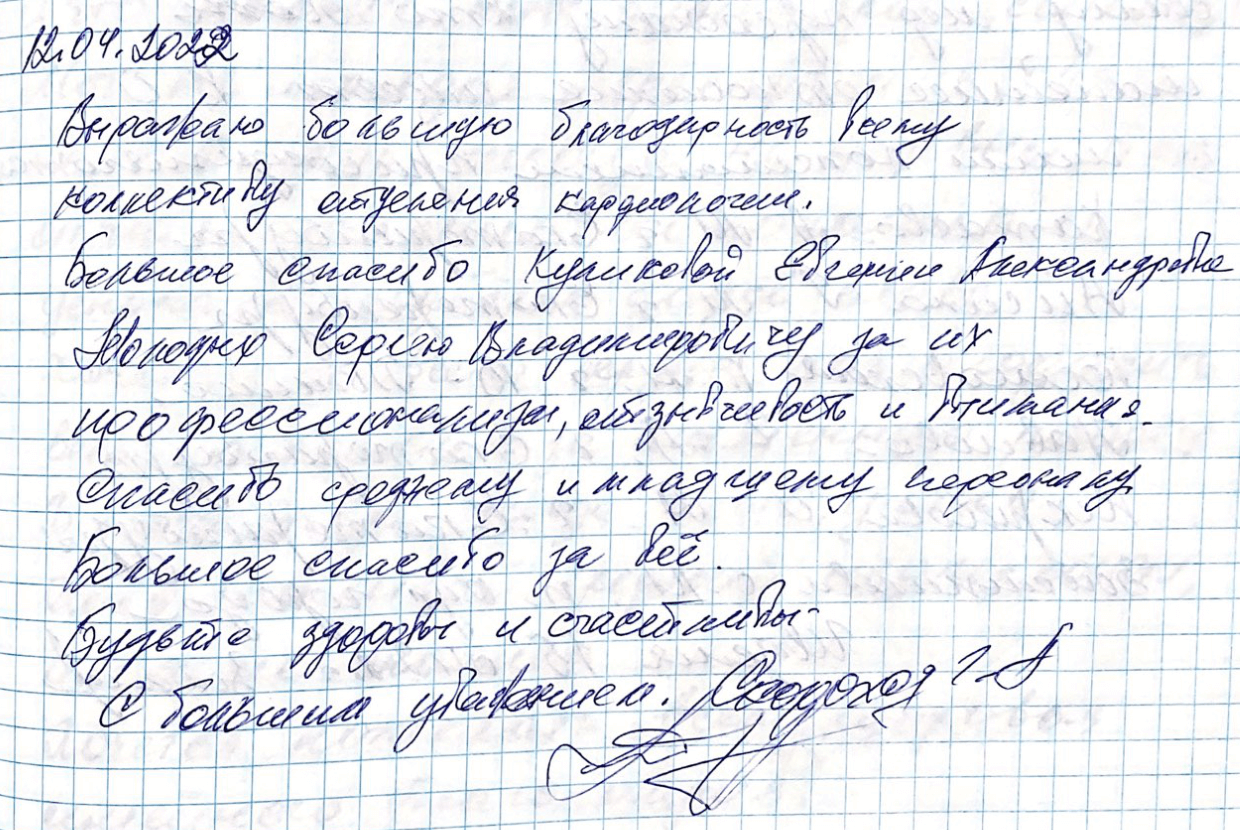 12.04.2022
Выражаю большую благодарность всему
коллективу отделения кардиологии.
Большое спасибо Куликовой Евгении Александровне
Сергею Владимировичу за их
профессионализм, отзывчивость и внимание.
Спасибо среднему и младшему персоналу
Большое спасибо за всё.
Будьте здоровы и счастливы.
С большим уважением.